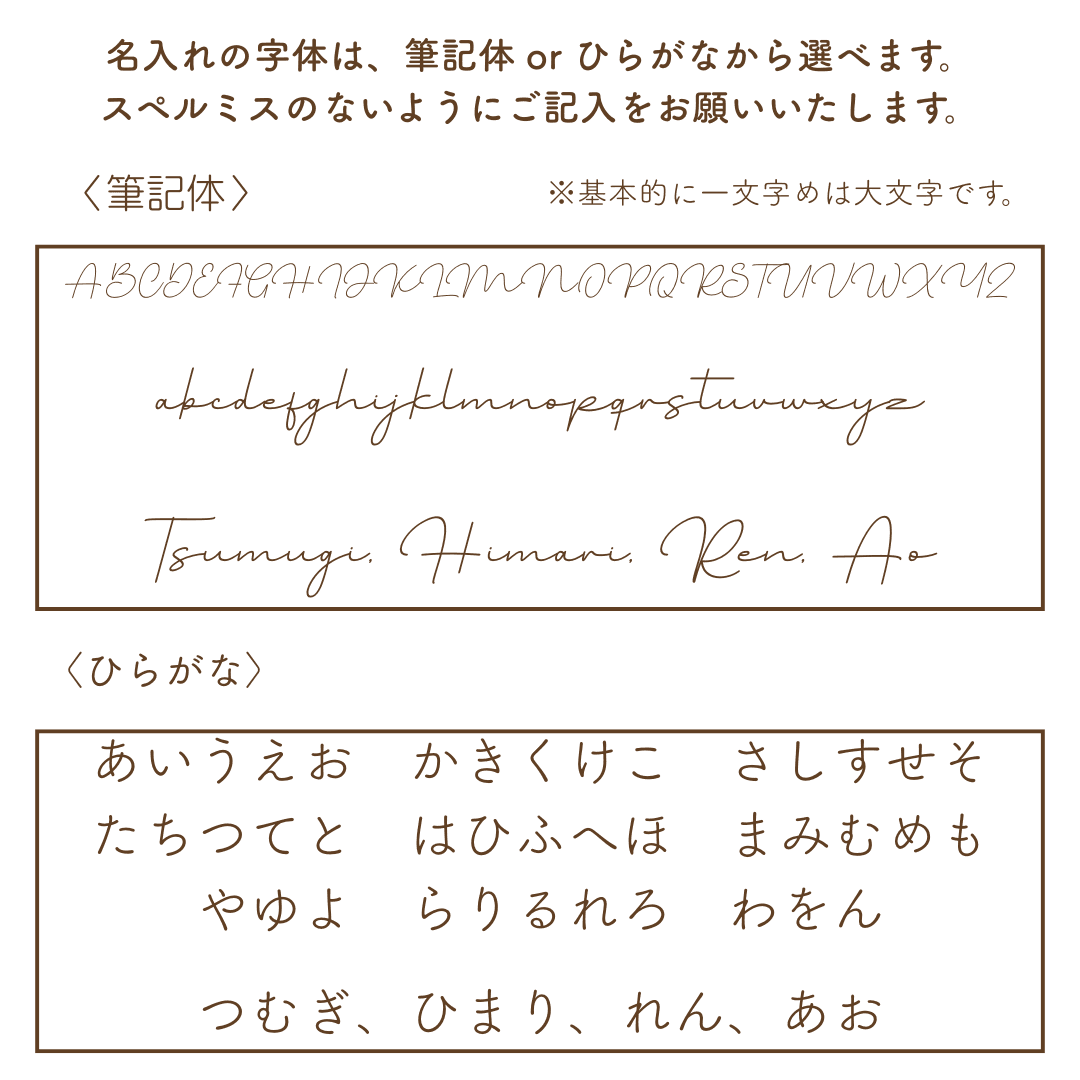 名入れの字体は、筆記体 or ひらがなから選べます。
スペルミスのないようにご記入をお願いいたします。
〈筆記体〉
※基本的に一文字めは大文字です。
ABCDEFGHIJKLMNOPQRSTUVWXYZ
abcdefghijklmnopqrstuvwxyz
Tsumugi, Himari, Ren, Ao
〈ひらがな〉
あいうえお かきくけこ さしすせそ
たちつてと はひふへほ まみむめも
やゆよ らりるれろ わをん
つむぎ、ひまり、れん、あお